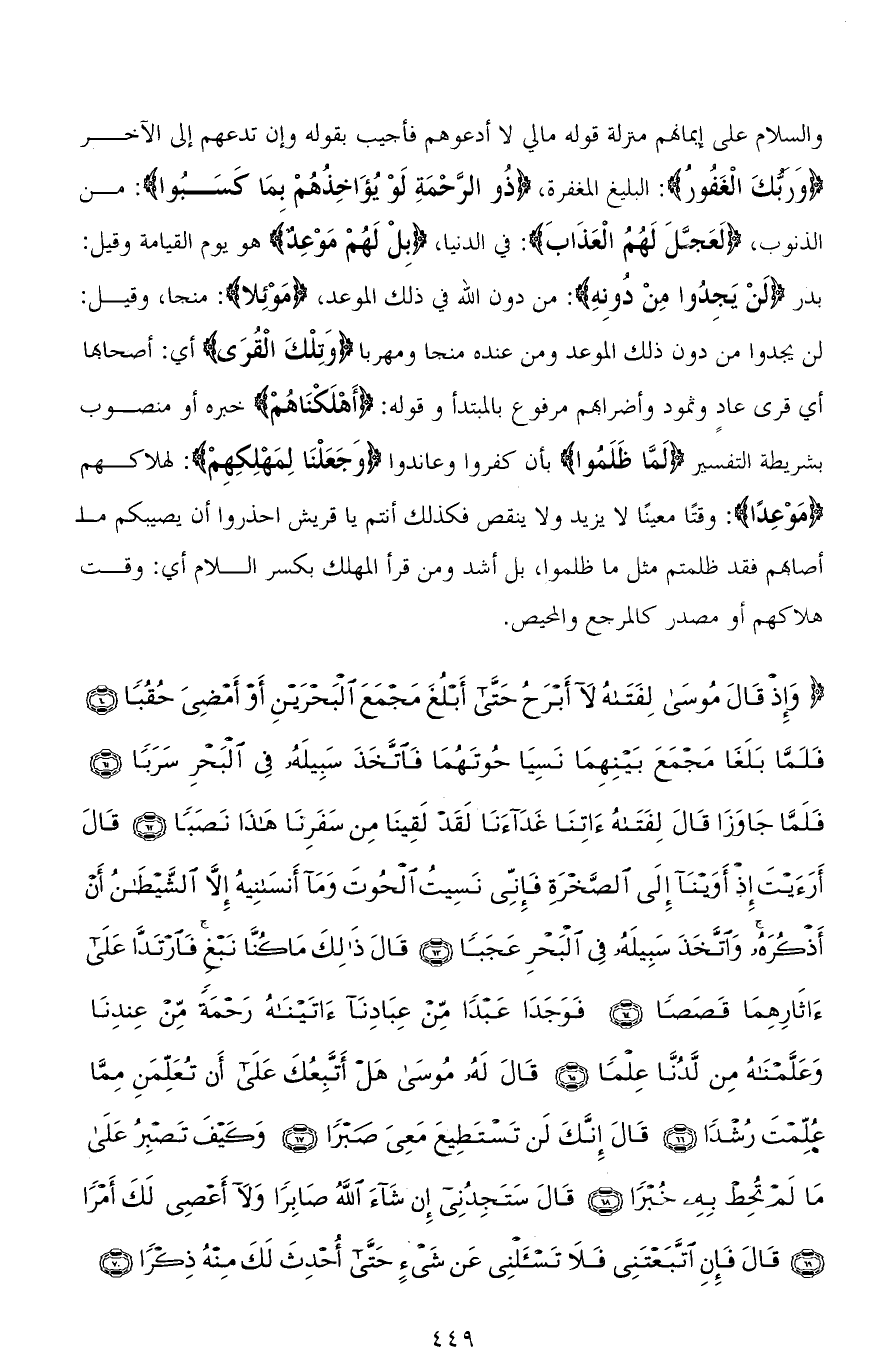 والسلام على إيمانهم منزلة قوله مالي لا أدعوهم فأجيب بقوله وإن تدعهم إلى الآخـــر
﴿وَرَبُّكَ الْغَفُورُ﴾: البليغ المغفرة، ﴿ذُو الرَّحْمَةِ لَوْ يُؤَاخِذُهُمْ بِمَا كَسَـبُوا﴾: مـن
الذنوب، ﴿لَعَجَّلَ لَهُمُ الْعَذَابَ﴾: في الدنيا، ﴿بِلْ لَهُمْ مَوْعِدٌ﴾ هو يوم القيامة وقيل:
بدر ﴿لَنْ يَجِدُوا مِنْ دُونِهِ﴾: من دون الله في ذلك الموعد، ﴿مَوْئِلا﴾: منجا، وقيـل:
لن يجدوا من دون ذلك الموعد ومن عنده منجا ومهربا ﴿وَتِلْكَ الْقُرَى﴾ أي: أصحابها
أي قرى عادٍ وثمود وأضرابهم مرفوع بالمبتدأ و قوله: ﴿أَهْلَكْنَاهُمْ﴾ خبره أو منصـوب
بشريطة التفسير ﴿لَمَّا ظَلَمُوا﴾ بأن كفروا وعاندوا ﴿وَجَعَلْنَا لِمَهْلِكِهِمْ﴾: لهلاكـهم
﴿مَوْعِدًا﴾: وقتًا معينًا لا يزيد ولا ينقص فكذلك أنتم يا قريش احذروا أن يصيبكم مـا
أصابهم فقد ظلمتم مثل ما ظلموا، بل أشد ومن قرأ المهلك بكسر الـلام أي: وقـت
هلاكهم أو مصدر كالمرجع والمحيص.
﴿ وَإِذْ قَالَ مُوسَىٰ لِفَتَىٰهُ لَآ أَبْرَحُ حَتَّىٰٓ أَبْلُغَ مَجْمَعَ ٱلْبَحْرَيْنِ أَوْ أَمْضِىَ حُقُبًا ٦٠
فَلَمَّا بَلَغَا مَجْمَعَ بَيْنِهِمَا نَسِيَا حُوتَهُمَا فَٱتَّخَذَ سَبِيلَهُۥ فِى ٱلْبَحْرِ سَرَبًا ٦١
فَلَمَّا جَاوَزَا قَالَ لِفَتَىٰهُ ءَاتِنَا غَدَآءَنَا لَقَدْ لَقِينَا مِن سَفَرِنَا هَٰذَا نَصَبًا ٦٢ قَالَ
أَرَءَيْتَ إِذْ أَوَيْنَآ إِلَى ٱلصَّخْرَةِ فَإِنِّى نَسِيتُ ٱلْحُوتَ وَمَآ أَنسَىٰنِيهُ إِلَّا ٱلشَّيْطَٰنُ أَنْ
أَذْكُرَهُۥ ۚ وَٱتَّخَذَ سَبِيلَهُۥ فِى ٱلْبَحْرِ عَجَبًا ٦٣ قَالَ ذَٰلِكَ مَا كُنَّا نَبْغِ ۚ فَٱرْتَدَّا عَلَىٰٓ
ءَاثَارِهِمَا قَصَصًا ٦٤ فَوَجَدَا عَبْدًا مِّنْ عِبَادِنَآ ءَاتَيْنَٰهُ رَحْمَةً مِّنْ عِندِنَا
وَعَلَّمْنَٰهُ مِن لَّدُنَّا عِلْمًا ٦٥ قَالَ لَهُۥ مُوسَىٰ هَلْ أَتَّبِعُكَ عَلَىٰٓ أَن تُعَلِّمَنِ مِمَّا
عُلِّمْتَ رُشْدًا ٦٦ قَالَ إِنَّكَ لَن تَسْتَطِيعَ مَعِىَ صَبْرًا ٦٧ وَكَيْفَ تَصْبِرُ عَلَىٰ
مَا لَمْ تُحِطْ بِهِۦ خُبْرًا ٦٨ قَالَ سَتَجِدُنِىٓ إِن شَآءَ ٱللَّهُ صَابِرًا وَلَآ أَعْصِى لَكَ أَمْرًا
٦٩ قَالَ فَإِنِ ٱتَّبَعْتَنِى فَلَا تَسْـَٔلْنِى عَن شَىْءٍ حَتَّىٰٓ أُحْدِثَ لَكَ مِنْهُ ذِكْرًا ٧٠
٤٤٩